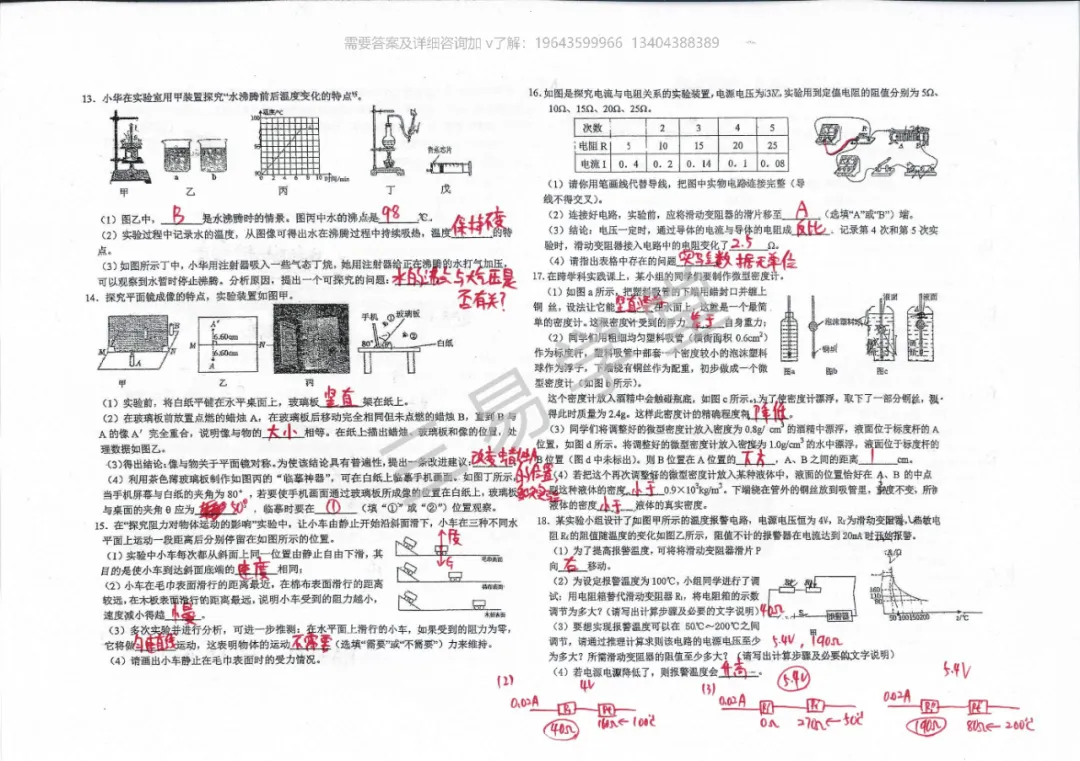 需要答案及详细咨询加 v了解：19643599966 13404388389
13．小华在实验室用甲装置探究“水沸腾前后温度变化的特点”。
温度/℃
时间/min
a b
甲 乙 丙 丁 戊
（1）图乙中， B 是水沸腾时的情景。图丙中水的沸点是 98 ℃。
（2）实验过程中记录水的温度，从图像可得出水在沸腾过程中持续吸热，温度 保持不变 的特
点。
（3）如图所示丁中，小华用注射器吸入一些气态丁烷，她用注射器给正在沸腾的水打气加压，
可以观察到水暂时停止沸腾。分析原因，提出一个可探究的问题：水的沸点与大气压是
否有关？
14．探究平面镜成像的特点，实验装置如图甲。
手机 玻璃板
80°
白纸
6.60cm
6.60cm
M N
甲 乙 丙
（1）实验前，将白纸平铺在水平桌面上，玻璃板 竖直 架在纸上。
（2）在玻璃板前放置点燃的蜡烛 A，在玻璃板后移动完全相同但未点燃的蜡烛 B，直到 B 与
A 的像 A′ 完全重合，说明像与物的 大小 相等。在纸上描出蜡烛、玻璃板和像的位置，处
理数据如图乙。
（3）得出结论：像与物关于平面镜对称。为使该结论具有普遍性，提出一条改进建议：改变蜡烛A
的位置
（4）利用茶色薄玻璃板制作如图丙的“临摹神器”，可在白纸上临摹手机画面。如图丁所示，
当手机屏幕与白纸的夹角为 80°，若要使手机画面通过玻璃板所成像的位置在白纸上，玻璃板
与桌面的夹角 θ 应为 50°，临摹时要在 ① （填“①”或“②”）位置观察。
15．在“探究阻力对物体运动的影响”实验中，让小车由静止开始沿斜面滑下，小车在三种不同水
平面上运动一段距离后分别停留在如图所示的位置。
（1）实验中小车每次都从斜面上同一位置由静止自由下滑，其
目的是使小车到达斜面底端的 速度 相同；
（2）小车在毛巾表面滑行的距离最近，在棉布表面滑行的距离
较远，在木板表面滑行的距离最远，说明小车受到的阻力越小，
速度减小得越 慢 。
（3）多次实验并进行分析，可进一步推测：在水平面上滑行的小车，如果受到的阻力为零，
它将做 匀速直线 运动，这表明物体的运动 不需要 （选填“需要”或“不需要”）力来维持。
（4）请画出小车静止在毛巾表面时的受力情况。
毛巾表面
棉布表面
木板表面
16．如图是探究电流与电阻关系的实验装置，电源电压为3V，实验用到定值电阻的阻值分别为 5Ω、
10Ω、15Ω、20Ω、25Ω。
次数 2 3 4 5
电阻 R 5 10 15 20 25
电流 I 0.4 0.2 0.14 0.1 0.08
（1）请你用笔画线代替导线，把图中实物电路连接完整（导
线不得交叉）。
（2）连接好电路，实验前，应将滑动变阻器的滑片移至 A （选填“A”或“B”）端。
（3）结论：电压一定时，通过导体的电流与导体的电阻成 反比 。记录第 4 次和第 5 次实
验时，滑动变阻器接入电路中的电阻变化了 2.5 Ω。
（4）请指出表格中存在的问题 实验数据无单位
17．在跨学科实践课上，某小组的同学们要制作微型密度计。
（1）如图 a 所示，把塑料吸管的下端用蜡封口并缠上
铜 丝，设法让它能 竖直漂浮 在水面上，这就是一个最简
单的密度计。这根密度计受到的浮力 等于 自身重力；
（2）同学们用粗细均匀塑料吸管（横街面积 0.6cm²）
作为标度杆，塑料吸管中部套一个密度较小的泡沫塑料
球作为浮子，下端绕有铜丝作为配重，初步做成一个微
型密度计（如图 b 所示）。
液面 液面
泡沫塑料球
铜丝
图a 图b 图c
这个密度计放入酒精中会触碰瓶底，如图 c 所示。为了使密度计漂浮，取下了一部分铜丝，测
得此时质量为 2.4g。这样此密度计的精确程度将 降低 。
（3）同学们将调整好的微型密度计放入密度为 0.8g/ cm³ 的酒精中漂浮，液面位于标度杆的 A
位置，如图 d 所示。将调整好的微型密度计放入密度为 1.0g/cm³ 的水中漂浮，液面位于标度杆的
B 位置（图 d 中未标出）。则 B 位置在 A 位置的 下方 ，A、B 之间的距离 1 cm。
（4）若把这个再次调整好的微型密度计放入某种液体中，液面的位置恰好在 A、B 的中点
则这种液体的密度 小于 0.9×10³kg/m³。下端绕在管外的铜丝放到吸管里，
液体的密度 小于 液体的真实密度。
18．某实验小组设计了如图甲所示的温度报警电路，电源电压恒为 4V，R₁为滑动变阻器，热敏电
阻 R₂的阻值随温度的变化如图乙所示，阻值不计的报警器在电流达到 20mA 时开始报警。
（1）为了提高报警温度，可将将滑动变阻器滑片 P
向 右 移动。
（2）为设定报警温度为 100℃，小组同学进行了调
试：用电阻箱替代滑动变阻器 R₁，将电阻箱的示数
调节为多大？（请写出计算步骤及必要的文字说明）40Ω
（3）要想实现报警温度可以在 50℃～200℃之间
调节，请通过推理计算求则该电路的电源电压至少 5.4V，190Ω
为多大？所需滑动变阻器的阻值至少多大？（请写出计算步骤及必要的文字说明）
（4）若电源电源降低了，则报警温度会 升高 。
报警器
甲
50 100 150 200 t/℃
(2) 4V
0.02A R₁
40Ω 160Ω←100℃
(3) 5.4V
0.02A
0Ω 270Ω←50℃
5.4V
0.02A
190Ω 80Ω←200℃
三易学堂